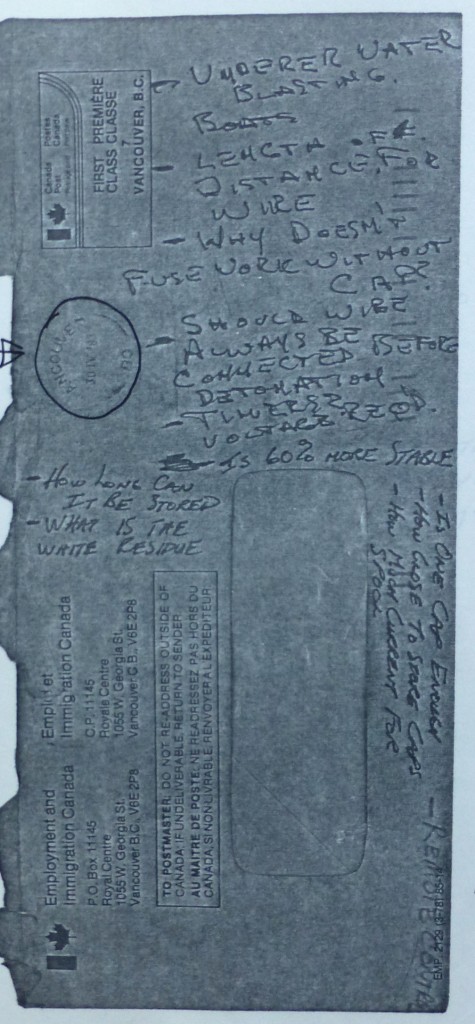 Canada Post
Postes Canada
FIRST PREMIÈRE
CLASS CLASSE
7
VANCOUVER, B.C.
UNDERWATER
BLASTING.
BOATS
- LENGTH OF
DISTANCE.
WIRE
- WHY DOESN'T
FUSE WORK WITHOUT
CAP.
- SHOULD WIRE
ALWAYS BE
CONNECTED BEFORE
DETONATION
- TIMERS?
VOLTAGE REQD.
- IS 60% MORE STABLE
- HOW LONG CAN
IT BE STORED
- WHAT IS THE
WHITE RESIDUE
- IS ONE CAP ENOUGH
- HOW CLOSE TO STORE CAPS
- HOW MUCH CURRENT FOR
SPOOL
- REMOTE
Employment and
Immigration Canada
P.O. Box 11145
Royal Centre
1055 W. Georgia St.
Vancouver B.C. V6E 2P8
Emploi et
Immigration Canada
C.P. 11145
Royale Centre
1055 W. Georgia St.
Vancouver C.B., V6E 2P8
TO POSTMASTER: DO NOT RE-ADDRESS OUTSIDE OF
CANADA. IF UNDELIVERABLE, RETURN TO SENDER.
AU MAITRE DE POSTE: NE READRESSEZ PAS HORS DU
CANADA. SI NON LIVRABLE, RENVOYER A L'EXPEDITEUR
EMP. 2129